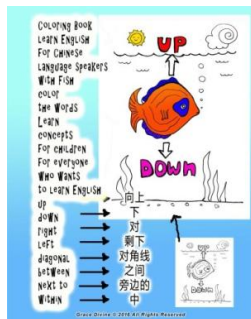 Coloring Book
Learn English
For Chinese
Language Speakers
With Fish
color
the Words
Learn
concepts
For Children
For everyone
Who Wants
to Learn English
up 向上
down 下
right 对
Left 剩下
diagonal 对角线
between 之间
Next to 旁边的
Within 中
UP
DOWN
Grace Divine © 2016 All Rights Reserved
UP
DOWN